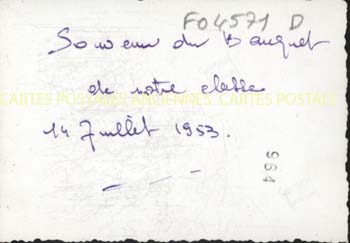 FO4571 D
Souvenir du Banquet
de notre classe
CARTES POSTALES ANCIENNES CARTES POSTALES
14 Juillet 1953.
964